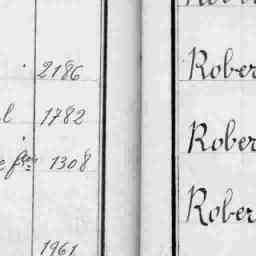 2186
1782
1308
1961
Rober
Rober
Rober